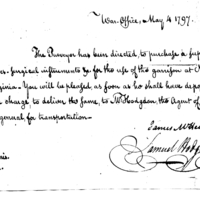 War-Office, May 4 1797.
The Purveyor has been directed, to purchase a sup
surgical instruments &c for the use of this garrison at
ginia. You will be pleased, as soon as he shall have depos
charge to deliver the same, to Mr Hodgdon, the Agent of
for transportation—
James McHen
Samuel Hodg